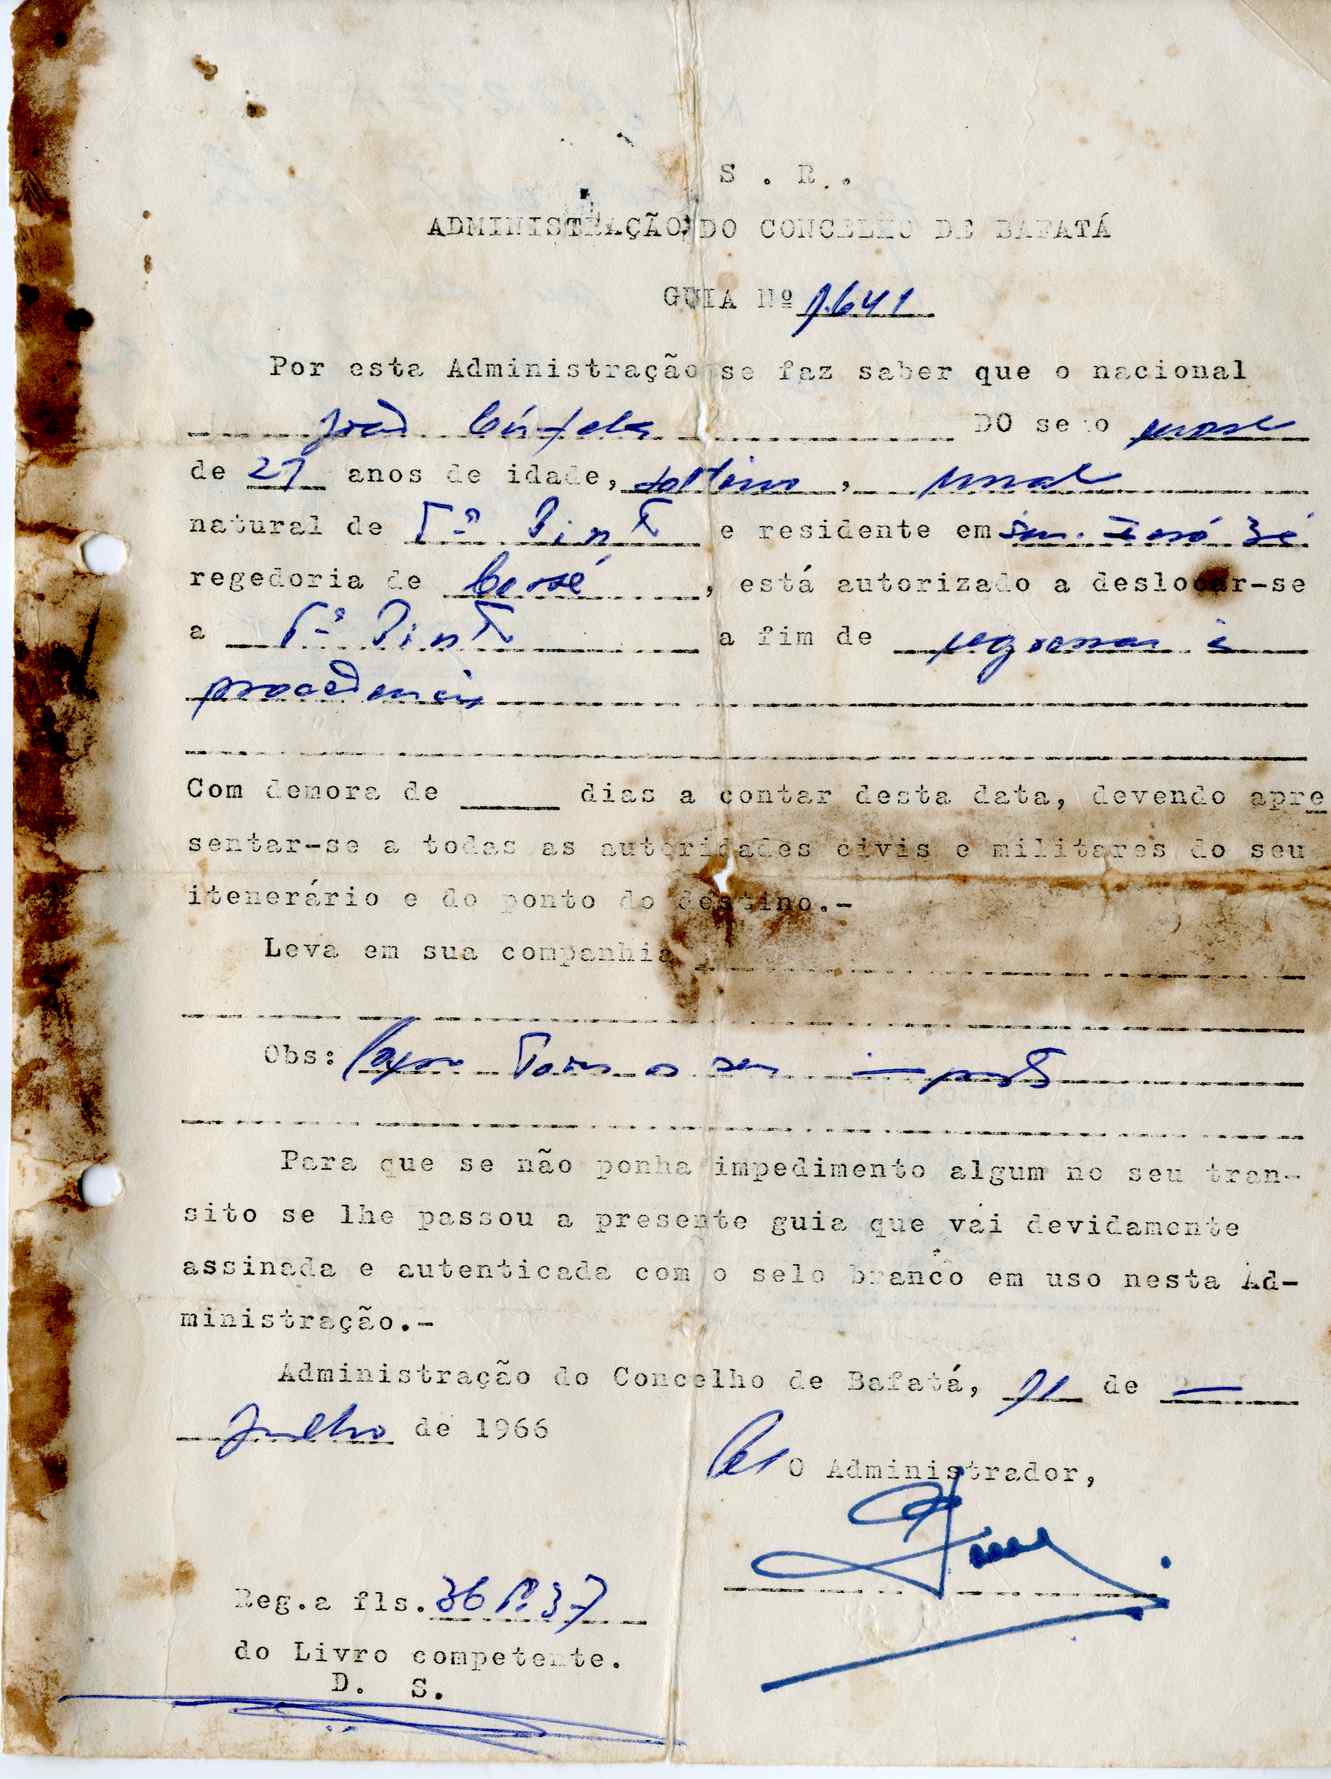 S . R .
ADMINISTRAÇÃO DO CONCELHO DE BAFATÁ
GUIA Nº 1.641
Por esta Administração se faz saber que o nacional
João DO sexo
de 27 anos de idade, solteiro,
natural de e residente em
regedoria de Cossé, está autorizado a deslocar-se
a a fim de regressar à
procedencia
Com demora de ____ dias a contar desta data, devendo apre
sentar-se a todas as autoridades civis e militares do seu
itenerário e do ponto do destino.-
Leva em sua companhia
Obs: o seu imposto
Para que se não ponha impedimento algum no seu tran-
sito se lhe passou a presente guia que vai devidamente
assinada e autenticada com o selo branco em uso nesta Ad-
ministração.-
Administração do Concelho de Bafatá, 11 de —
Julho de 1966
O Administrador,
Reg.a fls. 36 37
do Livro competente.
D. S.